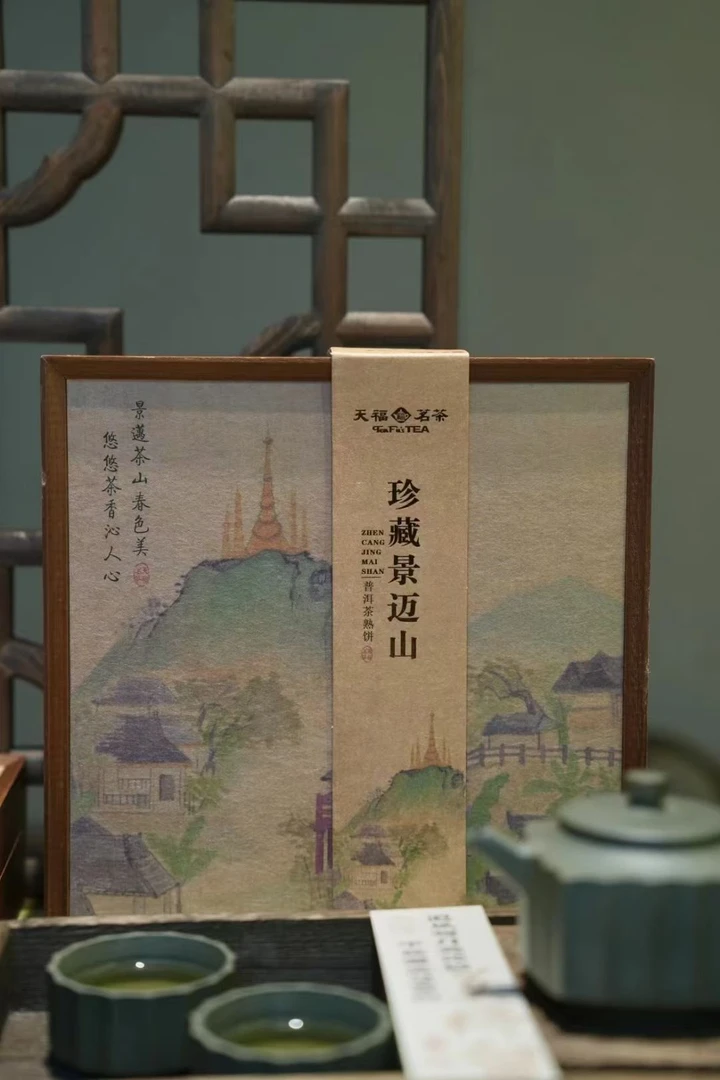 景邁茶山春色美
悠悠茶香沁人心
天福茗茶
TenFu's TEA
珍藏景迈山
ZHEN
CANG
JING
MAI
SHAN
普洱茶熟饼